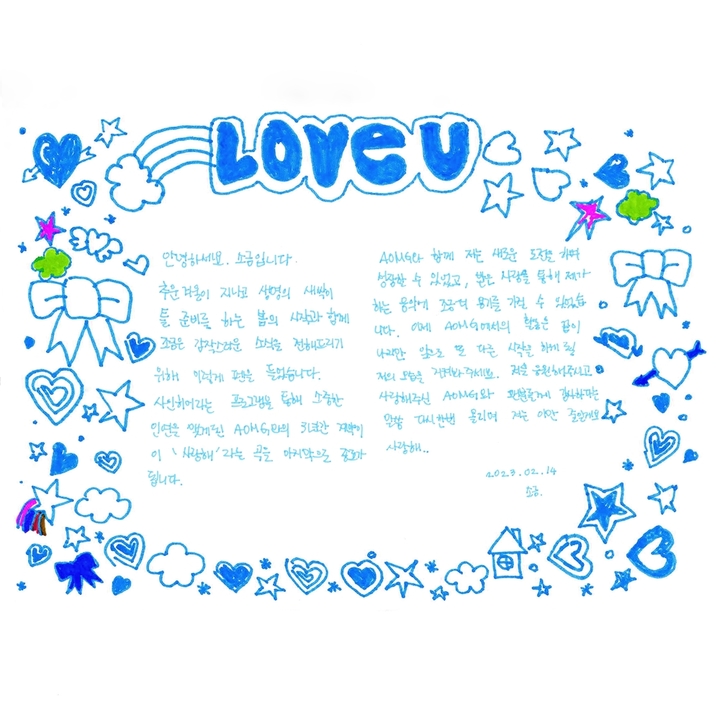 LOVE U
안녕하세요. 소금입니다.
추운 겨울이 지나고 생명의 새싹이
틀 준비를 하는 봄의 시작과 함께
조금은 갑작스러운 소식을 전해드리기
위해 이렇게 펜을 들었습니다.
사인히어라는 프로그램을 통해 소중한
인연을 맺게된 AOMG와의 3년간 계약이
이 '사랑해'라는 곡을 마지막으로 종료가
됩니다.
AOMG와 함께 저는 새로운 도전을 하며
성장할 수 있었고, 많은 사랑을 통해 제가
하는 음악에 조금 더 용기를 가질 수 있었습
니다. 이제 AOMG에서의 활동은 끝이
나지만 앞으로 또 다른 시작을 하게 될
저의 모습을 지켜봐주세요. 저를 응원해주시고
사랑해주신 AOMG와 팬분들께 감사하다는
말씀 다시한번 올리며 저는 이만 줄일게요
사랑해..
2023.02.14
소금.